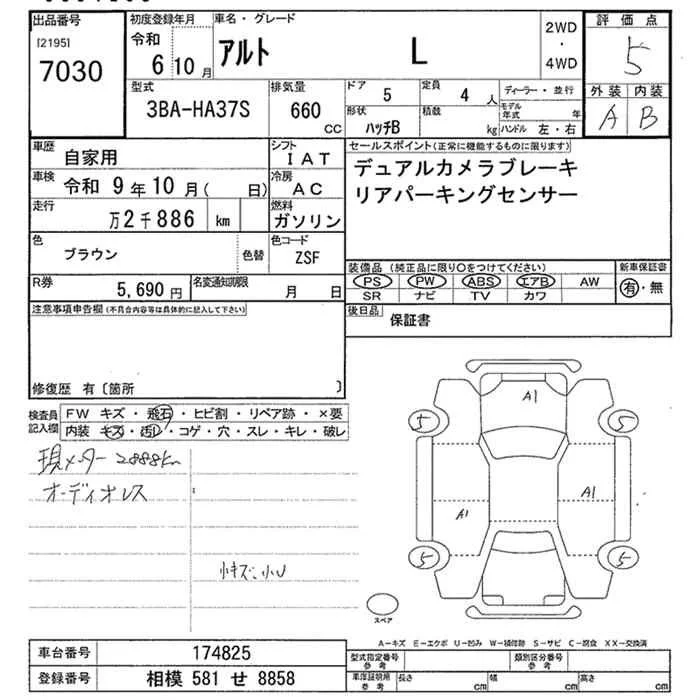 出品番号 初度登録年月 車名・グレード 評価点
[21951] 令和 アルト L 2WD
7030 6 10月 ・ 5
4WD
型式 排気量 ドア 5 定員 4 人 ディーラー・並行 外装 内装
3BA-HA37S 660 cc 形状 積数 モデル年式 年 A B
ハッチB kg ハンドル 左・右
車歴 自家用 シフト IAT セールスポイント(正常に機能するものに限ります)
車検 令和 9年10月( 日) 冷房 AC デュアルカメラブレーキ
走行 万2千886 km 燃料 ガソリン リアパーキングセンサー
色 ブラウン 色替 色コード ZSF
装備品 (純正品に限り○をつけてください) 新車保証書
R券 5,690円 名変通知期限 月 日 PS PW ABS エアB AW 有・無
SR ナビ TV カワ
注意事項申告欄(不具合内容等は具体的に記入して下さい) 後日品 保証書
修復歴 有〔箇所 〕
検査員記入欄 FW キズ・飛石・ヒビ割・リペア跡・×要
内装 キズ・汚レ・コゲ・穴・スレ・キレ・破レ
現メーター2888km
オーディオレス
小キズ、小U
A1
5 5
A1 A1
5 5
スペア
A-キズ E-エクボ U-凹み W-補修跡 S-サビ C-腐食 XX-交換済
車台番号 174825 型式指定番号 参考 類別区分番号 参考
登録番号 相模 581 せ 8858 車庫証明用 参考 長さ cm 幅 cm 高さ cm